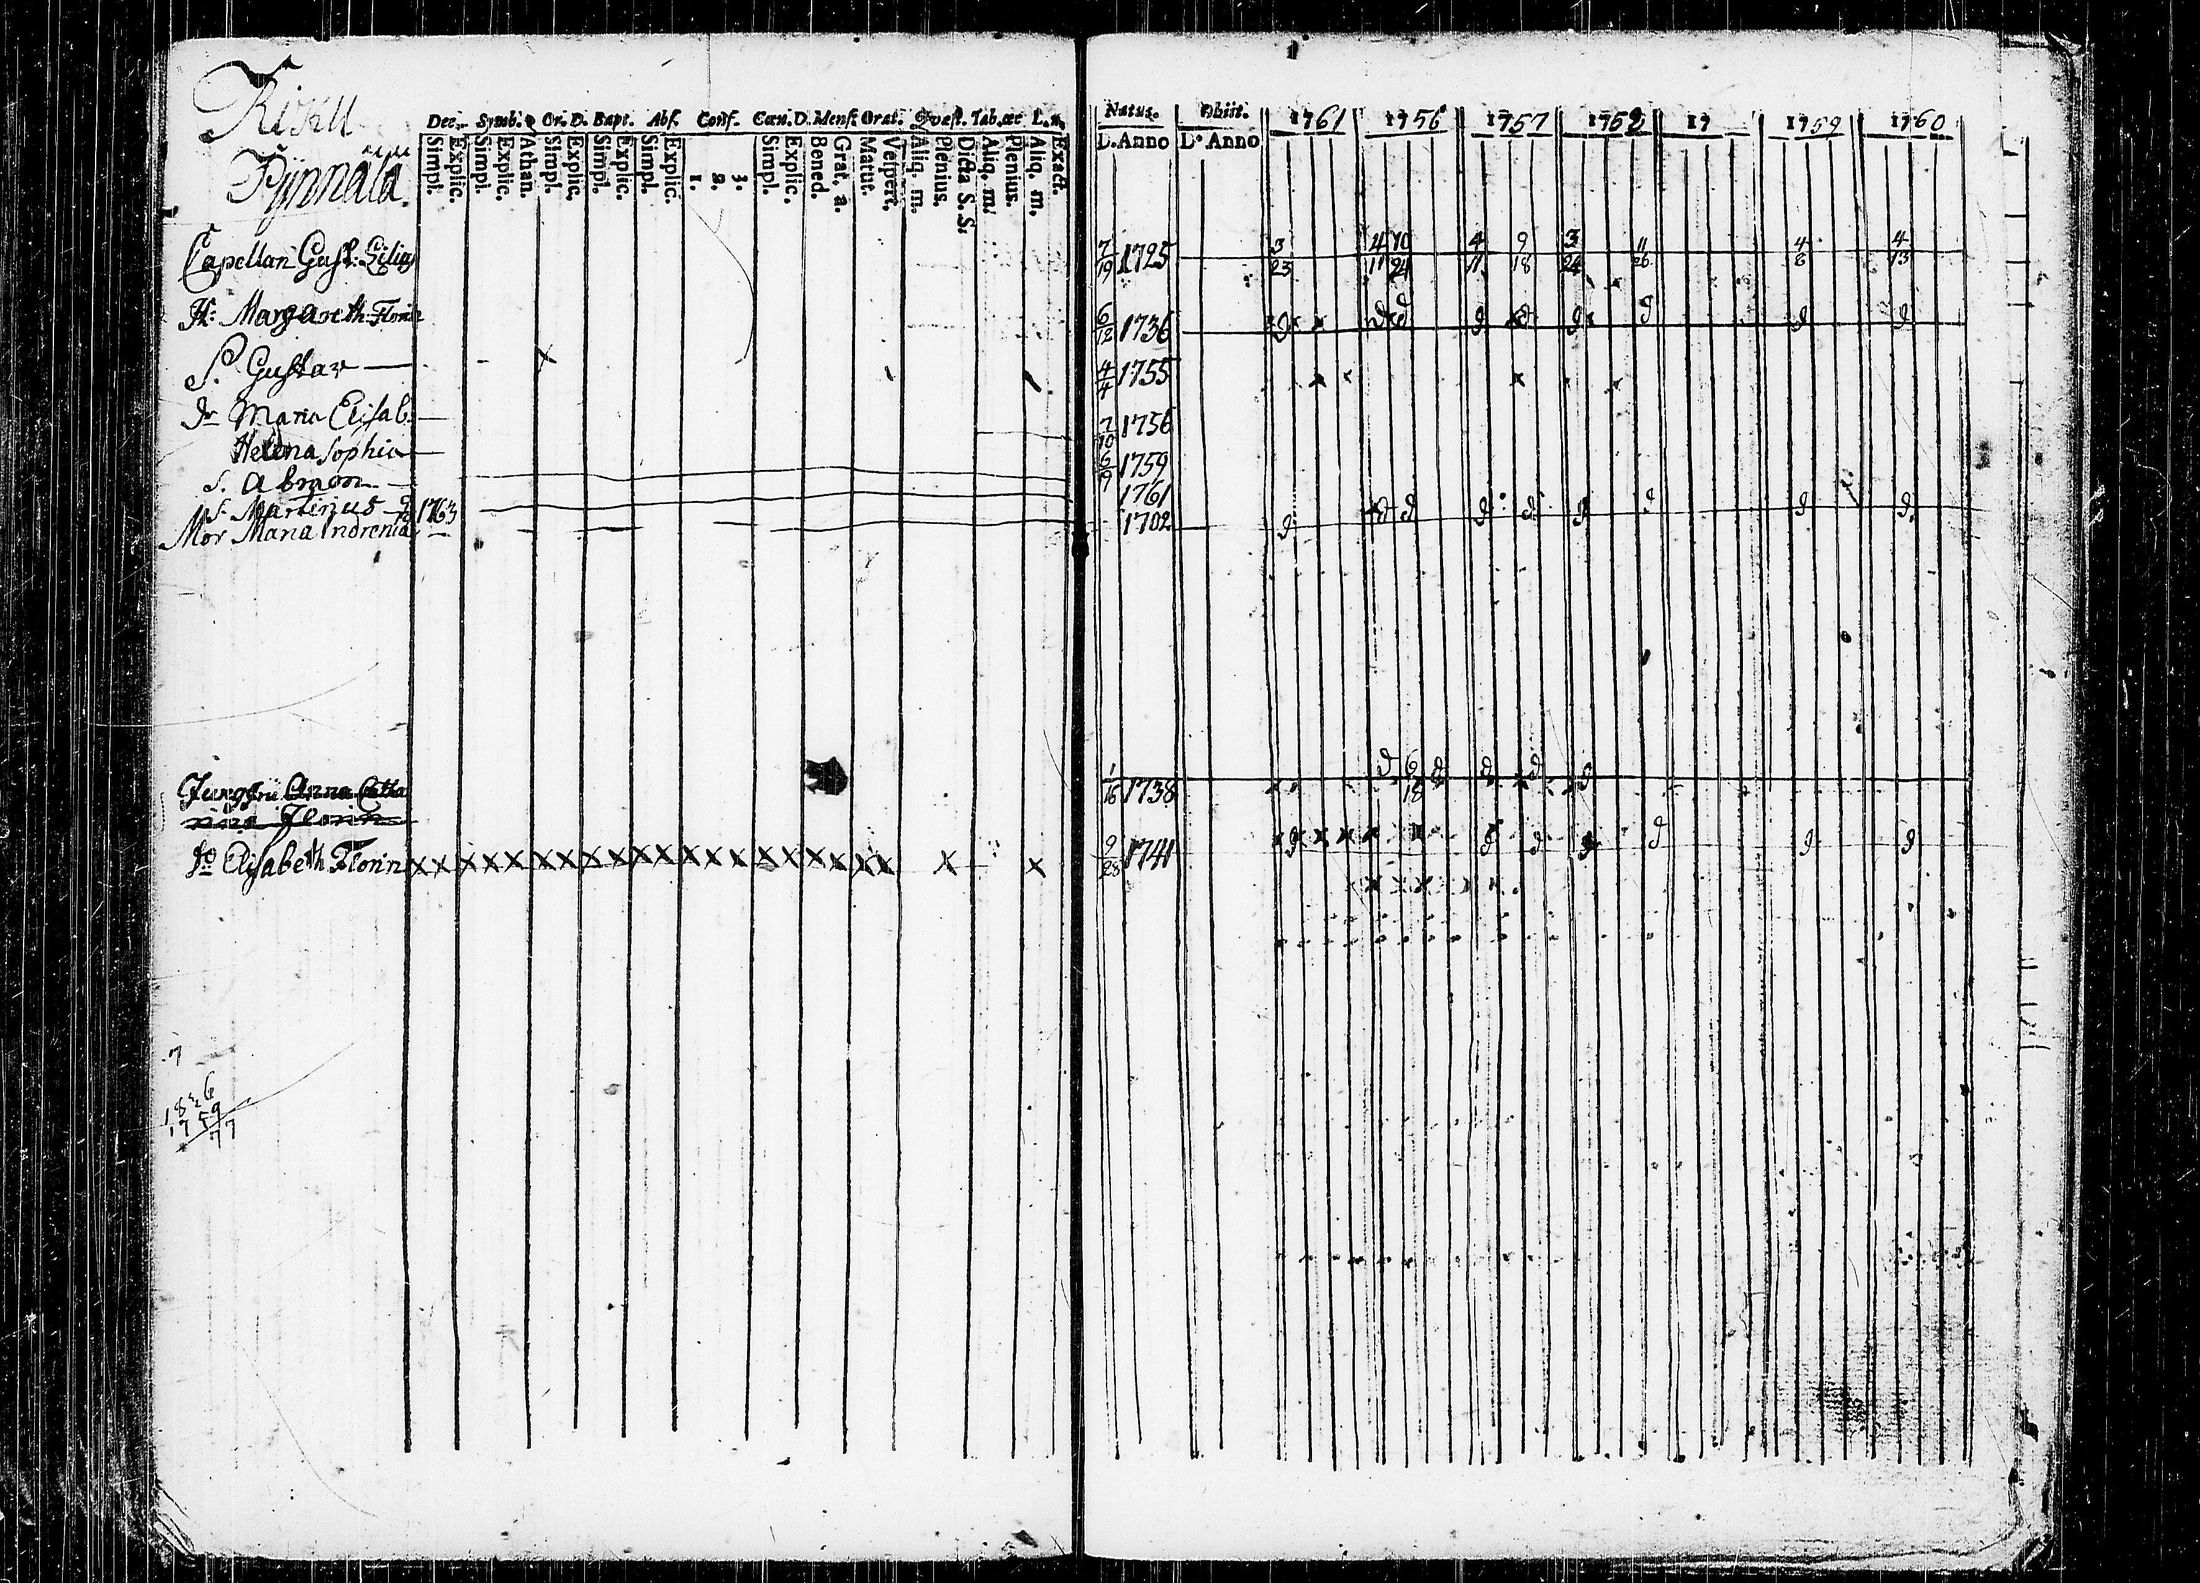 Dec. Symb. Or. D. Bapt. Abs. Conf. Cœn. D. Mens. Orat. Qvæst. Tab. œc. L. n.
Simpl. Explic. Simpl. Explic. Athan. Simpl. Explic. Simpl. Explic. Simpl. Explic. 1. 2. 3. Simpl. Explic. Bened. Grat. a. Matut. Vespert. Aliq. m. Plenius. Dicta S. S. Aliq. m. Plenius. Aliq. m. Exact.
Natus. Obiit. 1761 1756 1757 1758 17 1759 1760
D. Anno D. Anno
Capellan Gust: Lilius 7/19 1725 3/23 4/11 10/24 4/11 9/18 3/24 11/26 4/6 4/13
H: Margareth Florin 6/12 1736
S. Gustav 4/4 1755
Dr Maria Elisab. 7/10 1756
Helena Sophia 6/9 1759
S. Abram 1761
S. Martinus 1763
Mor Maria Indrenia 1702
Jungfru Anna Catha
rina Florin 1/16 1738 6/18
Do Elisabeth Florin x x x x x x x x x x x x x x x x x x x x x x 9/28 1741
7
1826
1759
77